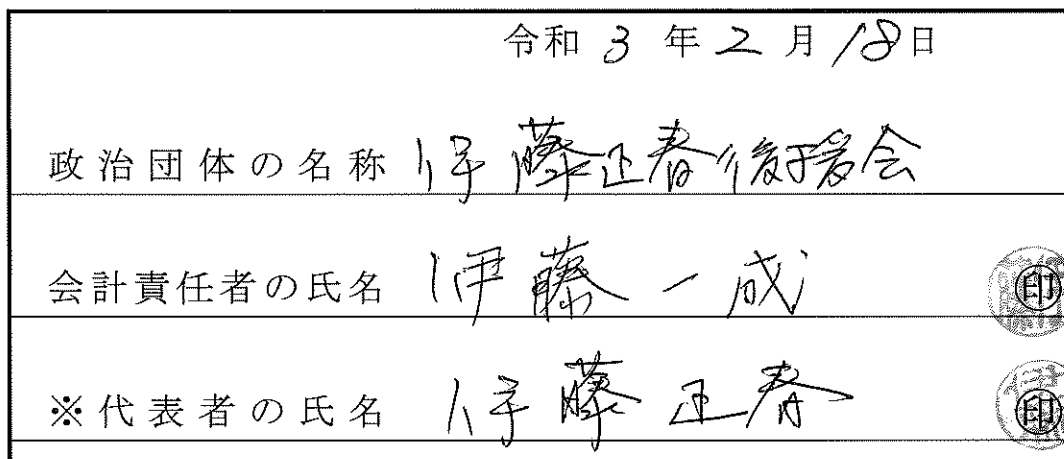 令和 3 年 2 月 18日
政治団体の名称 伊藤正春後援会
会計責任者の氏名 伊藤一成 印
※代表者の氏名 伊藤正春 印